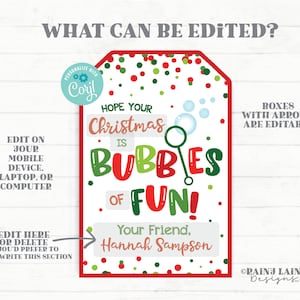 WHAT CAN BE EDITED?
PERSONALIZE WITH
Corjl
HOPE YOUR
Christmas
IS
BUBBLES
OF FUN!
Your Friend,
Hannah Sampson
EDIT ON
YOUR
MOBILE
DEVICE,
LAPTOP, OR
COMPUTER
BOXES
WITH ARROW
ARE EDITAB
EDIT HERE
OR DELETE
YOU'D PREFER TO
WRITE THIS SECTION
©RAINJ LAIN
Designs